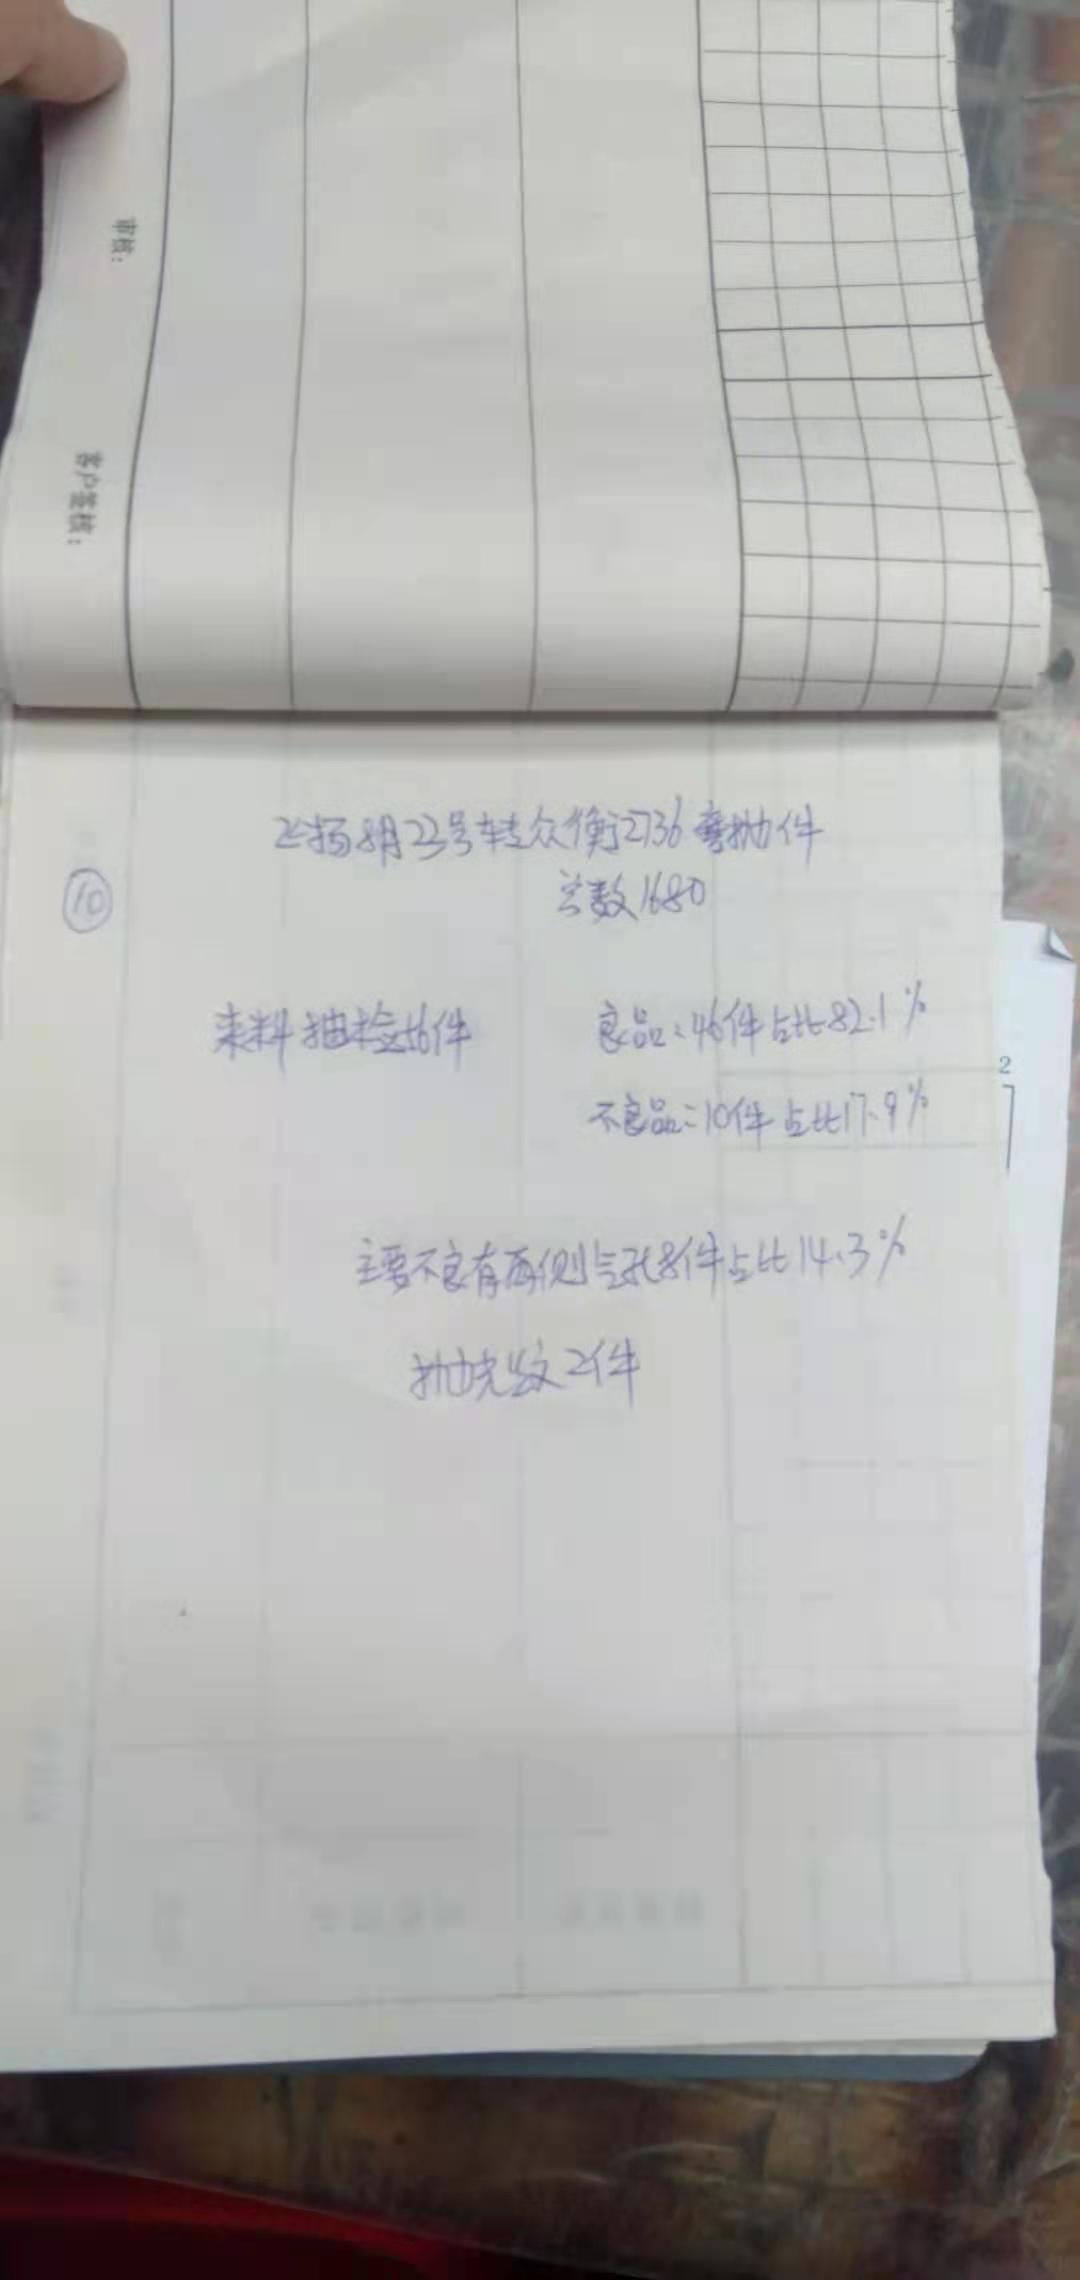 审核:
客户签核:
⑩
飞扬8月23号转众衡2736弯抛件
总数1680
来料抽检56件
良品:46件占比82.1%
不良品:10件占比17.9%
2
主要不良有两侧气孔8件占比14.3%
抛光纹2件